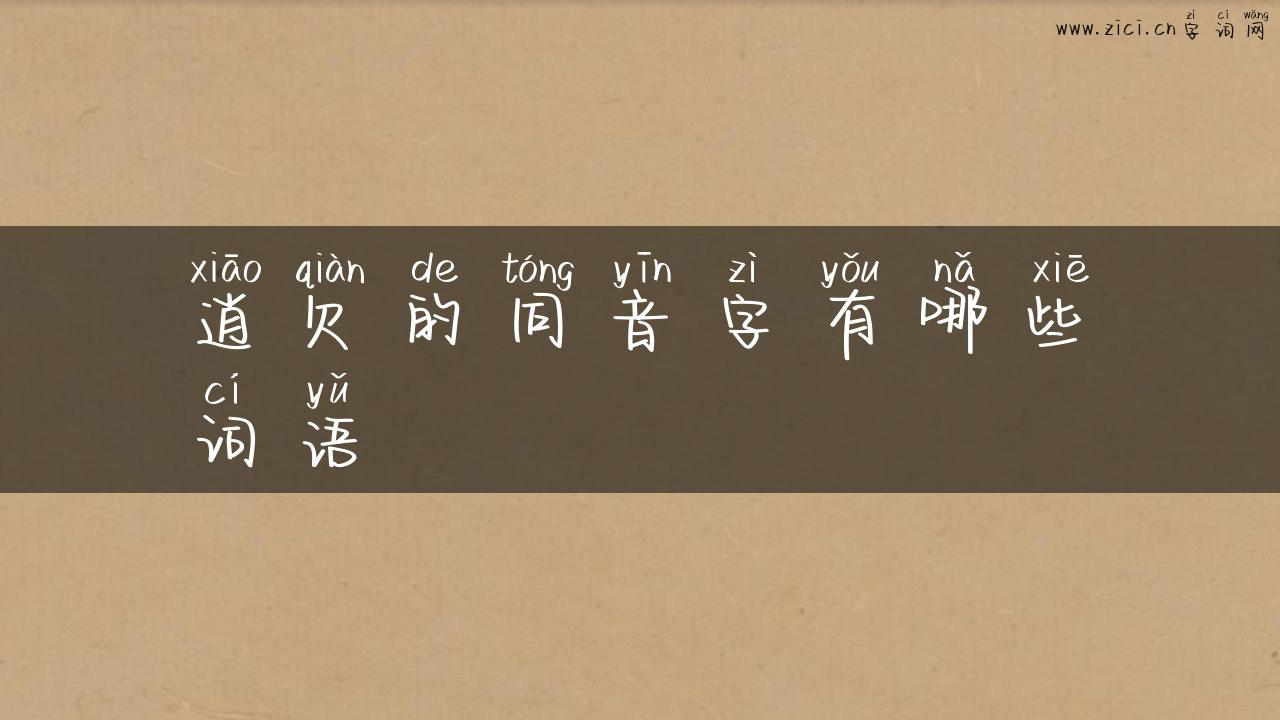 zì cí wǎng
www.zici.cn 字词网
xiāo qiàn de tóng yīn zì yǒu nǎ xiē
逍欠的同音字有哪些
cí yǔ
词语